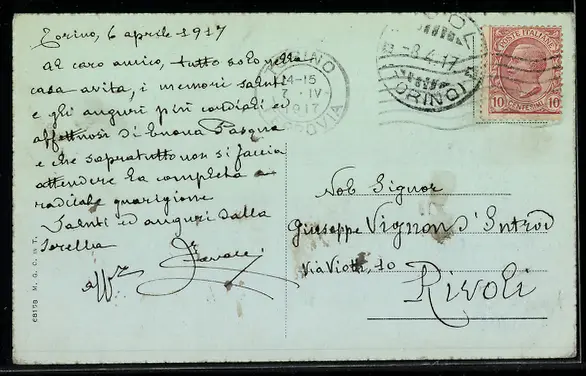 Torino, 6 aprile 1917
Al caro amico, tutto solo nella
casa avita, i memori saluti
e gli auguri più cordiali ed
affettuosi di buona Pasqua
e che sopratutto non si faccia
attendere la completa e
radicale guarigione
Saluti ed auguri dalla
sorella
aff.
TORINO
14-15
7 IV
1917
FERROVIA
-8.4.17
TORINO
POSTE ITALIANE
10 CENTESIMI 10
Nob Signor
Giuseppe Vignon d'Introd
Via Viotti, 10
Rivoli
68159 M. G. C. & T.